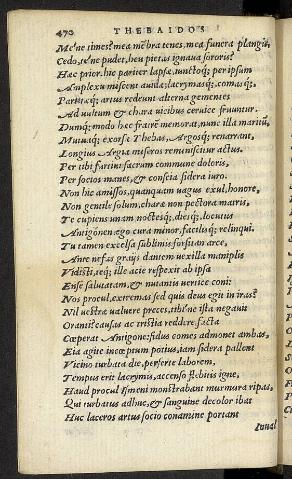 470 THEBAIDOS
Me'ne times? mea mẽbra tenes, mea funera plangis,
Cedo, tene pudet, heu pietas ignaua sororis?
Hæc prior. hic pariter lapsæ, iunctoq; per ipsum
Amplexu miscent auidæ lacrymasq;, comasq;,
Partitæq; artus redeunt alterna gementes
Ad uultum & chara uicibus ceruice fruuntur.
Dumq; modo hæc fratrẽ memorat, nunc illa maritũ,
Mutuaq; exorsæ Thebas, Argosq; renarrant,
Longius Argia miseros reminiscitur actus.
Per tibi furtiui sacrum commune doloris,
Per socios manes, & conscia sidera iuro.
Non hic amissos, quanquam uagus exul, honore,
Non gentile solum, charæ non pectora matris,
Te cupiens unam noctesq;, diesq;, locutus
Antigonen. ego cura minor, facilisq; relinqui.
Tu tamen excelsa sublimis forsitan arce,
Ante nefas graijs dantem uexilla maniplis
Vidisti, teq; ille acie respexit ab ipsa
Ense salutatam, & nutantis uertice coni:
Nos procul. extremas sed quis deus egit in iras?
Nil uestræ ualuere preces, tibi'ne ista negauit
Oranti? causas ac tristia reddere facta
Cœperat Antigone: fidus comes admonet ambas,
Eia agite inceptum potius, iam sidera pallent
Vicino turbata die, perferte laborem,
Tempus erit lacrymis, accenso flebitis igne,
Haud procul Ismeni monstrabant murmura ripas,
Qui turbatus adhuc, & sanguine decolor ibat
Huc laceros artus socio conamine portant
Inual